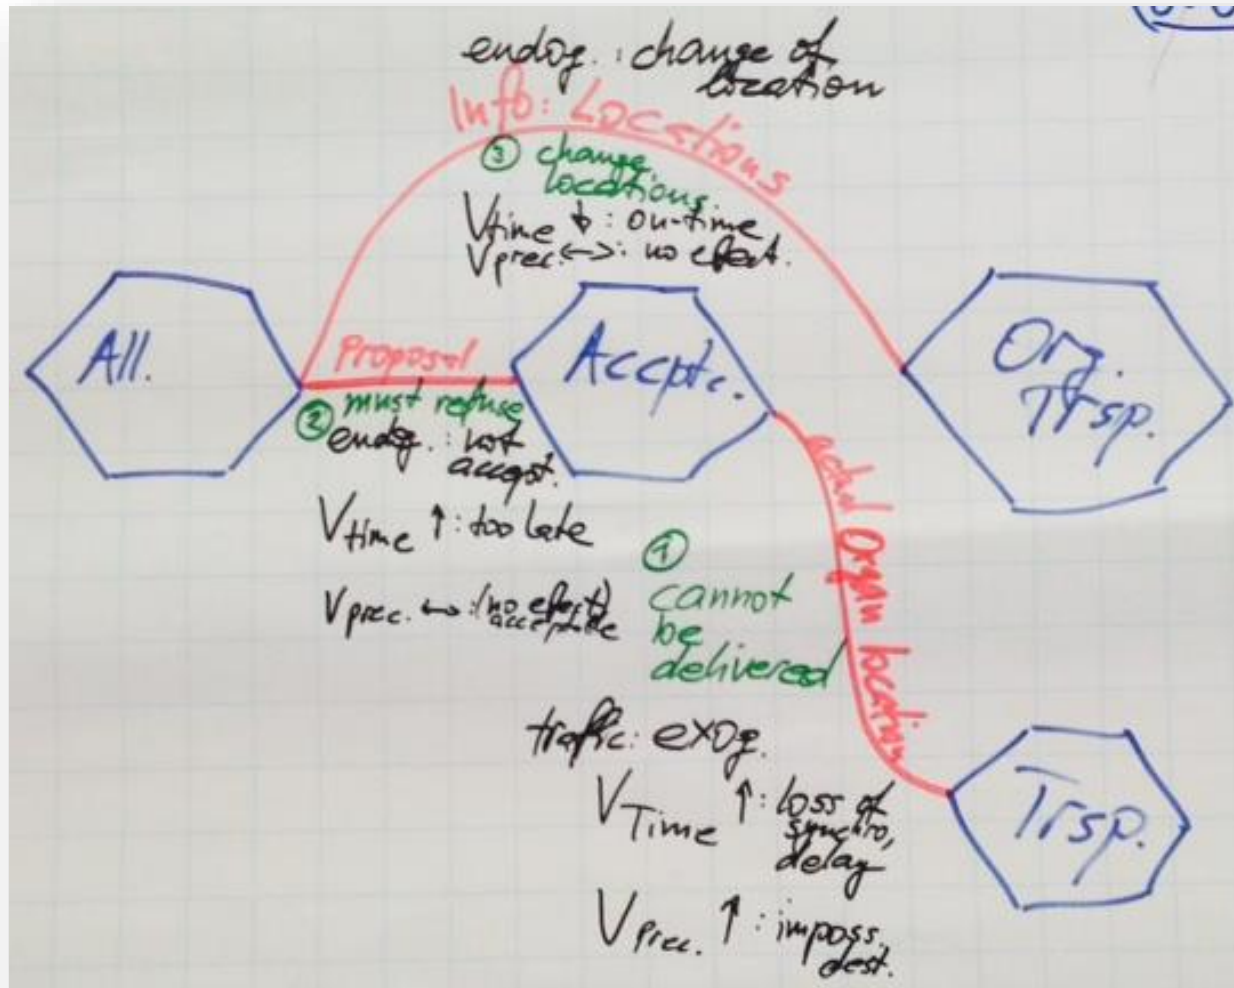 endog. : change of
location
Info: Locations
③ change
locations.
Vtime ↓ : on-time
Vprec. ↔ : no efect.
All.
Proposal
Accptc.
Org.
Trsp.
② must refuse
endog. : not
accept.
Vtime ↑ : too late
Vprec. ↔ : (no efect)
acceptable
actual Organ location
① cannot
be
delivered
traffic: exog.
VTime ↑ : loss of
synchro,
delay
VPrec. ↑ : imposs.
dest.
Trsp.